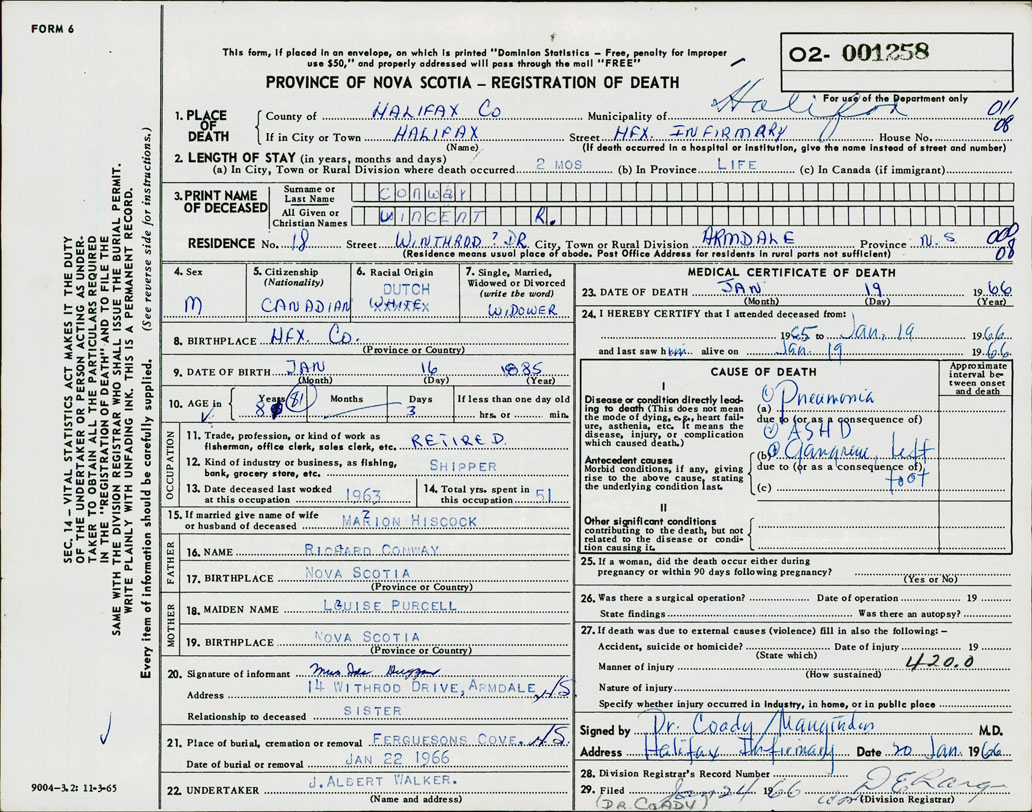 FORM 6
This form, if placed in an envelope, on which is printed "Dominion Statistics – Free, penalty for improper
use $50," and properly addressed will pass through the mail "FREE"
02- 001258
PROVINCE OF NOVA SCOTIA – REGISTRATION OF DEATH
For use of the Department only
Halifax
011
08
1. PLACE OF DEATH
County of HALIFAX CO Municipality of
If in City or Town HALIFAX Street HFX. INFIRMARY House No.
(Name) (If death occurred in a hospital or institution, give the name instead of street and number)
2. LENGTH OF STAY (in years, months and days)
(a) In City, Town or Rural Division where death occurred 2 MOS (b) In Province LIFE (c) In Canada (if immigrant)
3. PRINT NAME OF DECEASED
Surname or Last Name CONWAY
All Given or Christian Names VINCENT R.
RESIDENCE No. 18 Street WINTHROD? DR City, Town or Rural Division ARMDALE Province N.S
000
08
(Residence means usual place of abode. Post Office Address for residents in rural parts not sufficient)
4. Sex
M
5. Citizenship
(Nationality)
CANADIAN
6. Racial Origin
DUTCH
WHITE
7. Single, Married,
Widowed or Divorced
(write the word)
WIDOWER
8. BIRTHPLACE HFX. CO.
(Province or Country)
9. DATE OF BIRTH JAN 16 1885
(Month) (Day) (Year)
10. AGE in
Years Months Days If less than one day old
81 3 hrs. or min.
OCCUPATION
11. Trade, profession, or kind of work as
fisherman, office clerk, sales clerk, etc. RETIRED.
12. Kind of industry or business, as fishing,
bank, grocery store, etc. SHIPPER
13. Date deceased last worked
at this occupation 1963
14. Total yrs. spent in
this occupation 51
15. If married give name of wife
or husband of deceased MARION HISCOCK
?
FATHER
16. NAME RICHARD CONWAY
17. BIRTHPLACE NOVA SCOTIA
(Province or Country)
MOTHER
18. MAIDEN NAME LOUISE PURCELL
19. BIRTHPLACE NOVA SCOTIA
(Province or Country)
20. Signature of informant
Address 14 WITHROD DRIVE, ARMDALE NS
Relationship to deceased SISTER
21. Place of burial, cremation or removal FERGUESONS COVE. NS.
Date of burial or removal JAN 22 1966
22. UNDERTAKER J. ALBERT WALKER.
(Name and address)
MEDICAL CERTIFICATE OF DEATH
23. DATE OF DEATH JAN 19 1966
(Month) (Day) (Year)
24. I HEREBY CERTIFY that I attended deceased from:
1965 to Jan. 19 1966
and last saw him alive on Jan. 19 1966
CAUSE OF DEATH
Approximate
interval be-
tween onset
and death
I
Disease or condition directly lead-
ing to death (This does not mean
the mode of dying, e.g., heart fail-
ure, asthenia, etc. It means the
disease, injury, or complication
which caused death.)
(a) Pneumonia
due to (or as a consequence of)
ASHD
Antecedent causes
Morbid conditions, if any, giving
rise to the above cause, stating
the underlying condition last.
(b) Gangrene, left
due to (or as a consequence of)
foot
(c)
II
Other significant conditions
contributing to the death, but not
related to the disease or condi-
tion causing it.
25. If a woman, did the death occur either during
pregnancy or within 90 days following pregnancy?
(Yes or No)
26. Was there a surgical operation? Date of operation 19
State findings Was there an autopsy?
27. If death was due to external causes (violence) fill in also the following: –
Accident, suicide or homicide? Date of injury 19
(State which)
Manner of injury 420.0
(How sustained)
Nature of injury
Specify whether injury occurred in industry, in home, or in public place
Signed by Dr. Coady / M.D.
Address Halifax Infirmary Date 20 Jan. 1966
28. Division Registrar's Record Number
29. Filed Jan 24 1966
(DR. COADY) (Division Registrar)
SEC. 14 – VITAL STATISTICS ACT MAKES IT THE DUTY
OF THE UNDERTAKER OR PERSON ACTING AS UNDER-
TAKER TO OBTAIN ALL THE PARTICULARS REQUIRED
IN THE "REGISTRATION OF DEATH" AND TO FILE THE
SAME WITH THE DIVISION REGISTRAR WHO SHALL ISSUE THE BURIAL PERMIT.
WRITE PLAINLY WITH UNFADING INK. THIS IS A PERMANENT RECORD.
Every item of information should be carefully supplied. (See reverse side for instructions.)
9004–3.2: 11-3-65